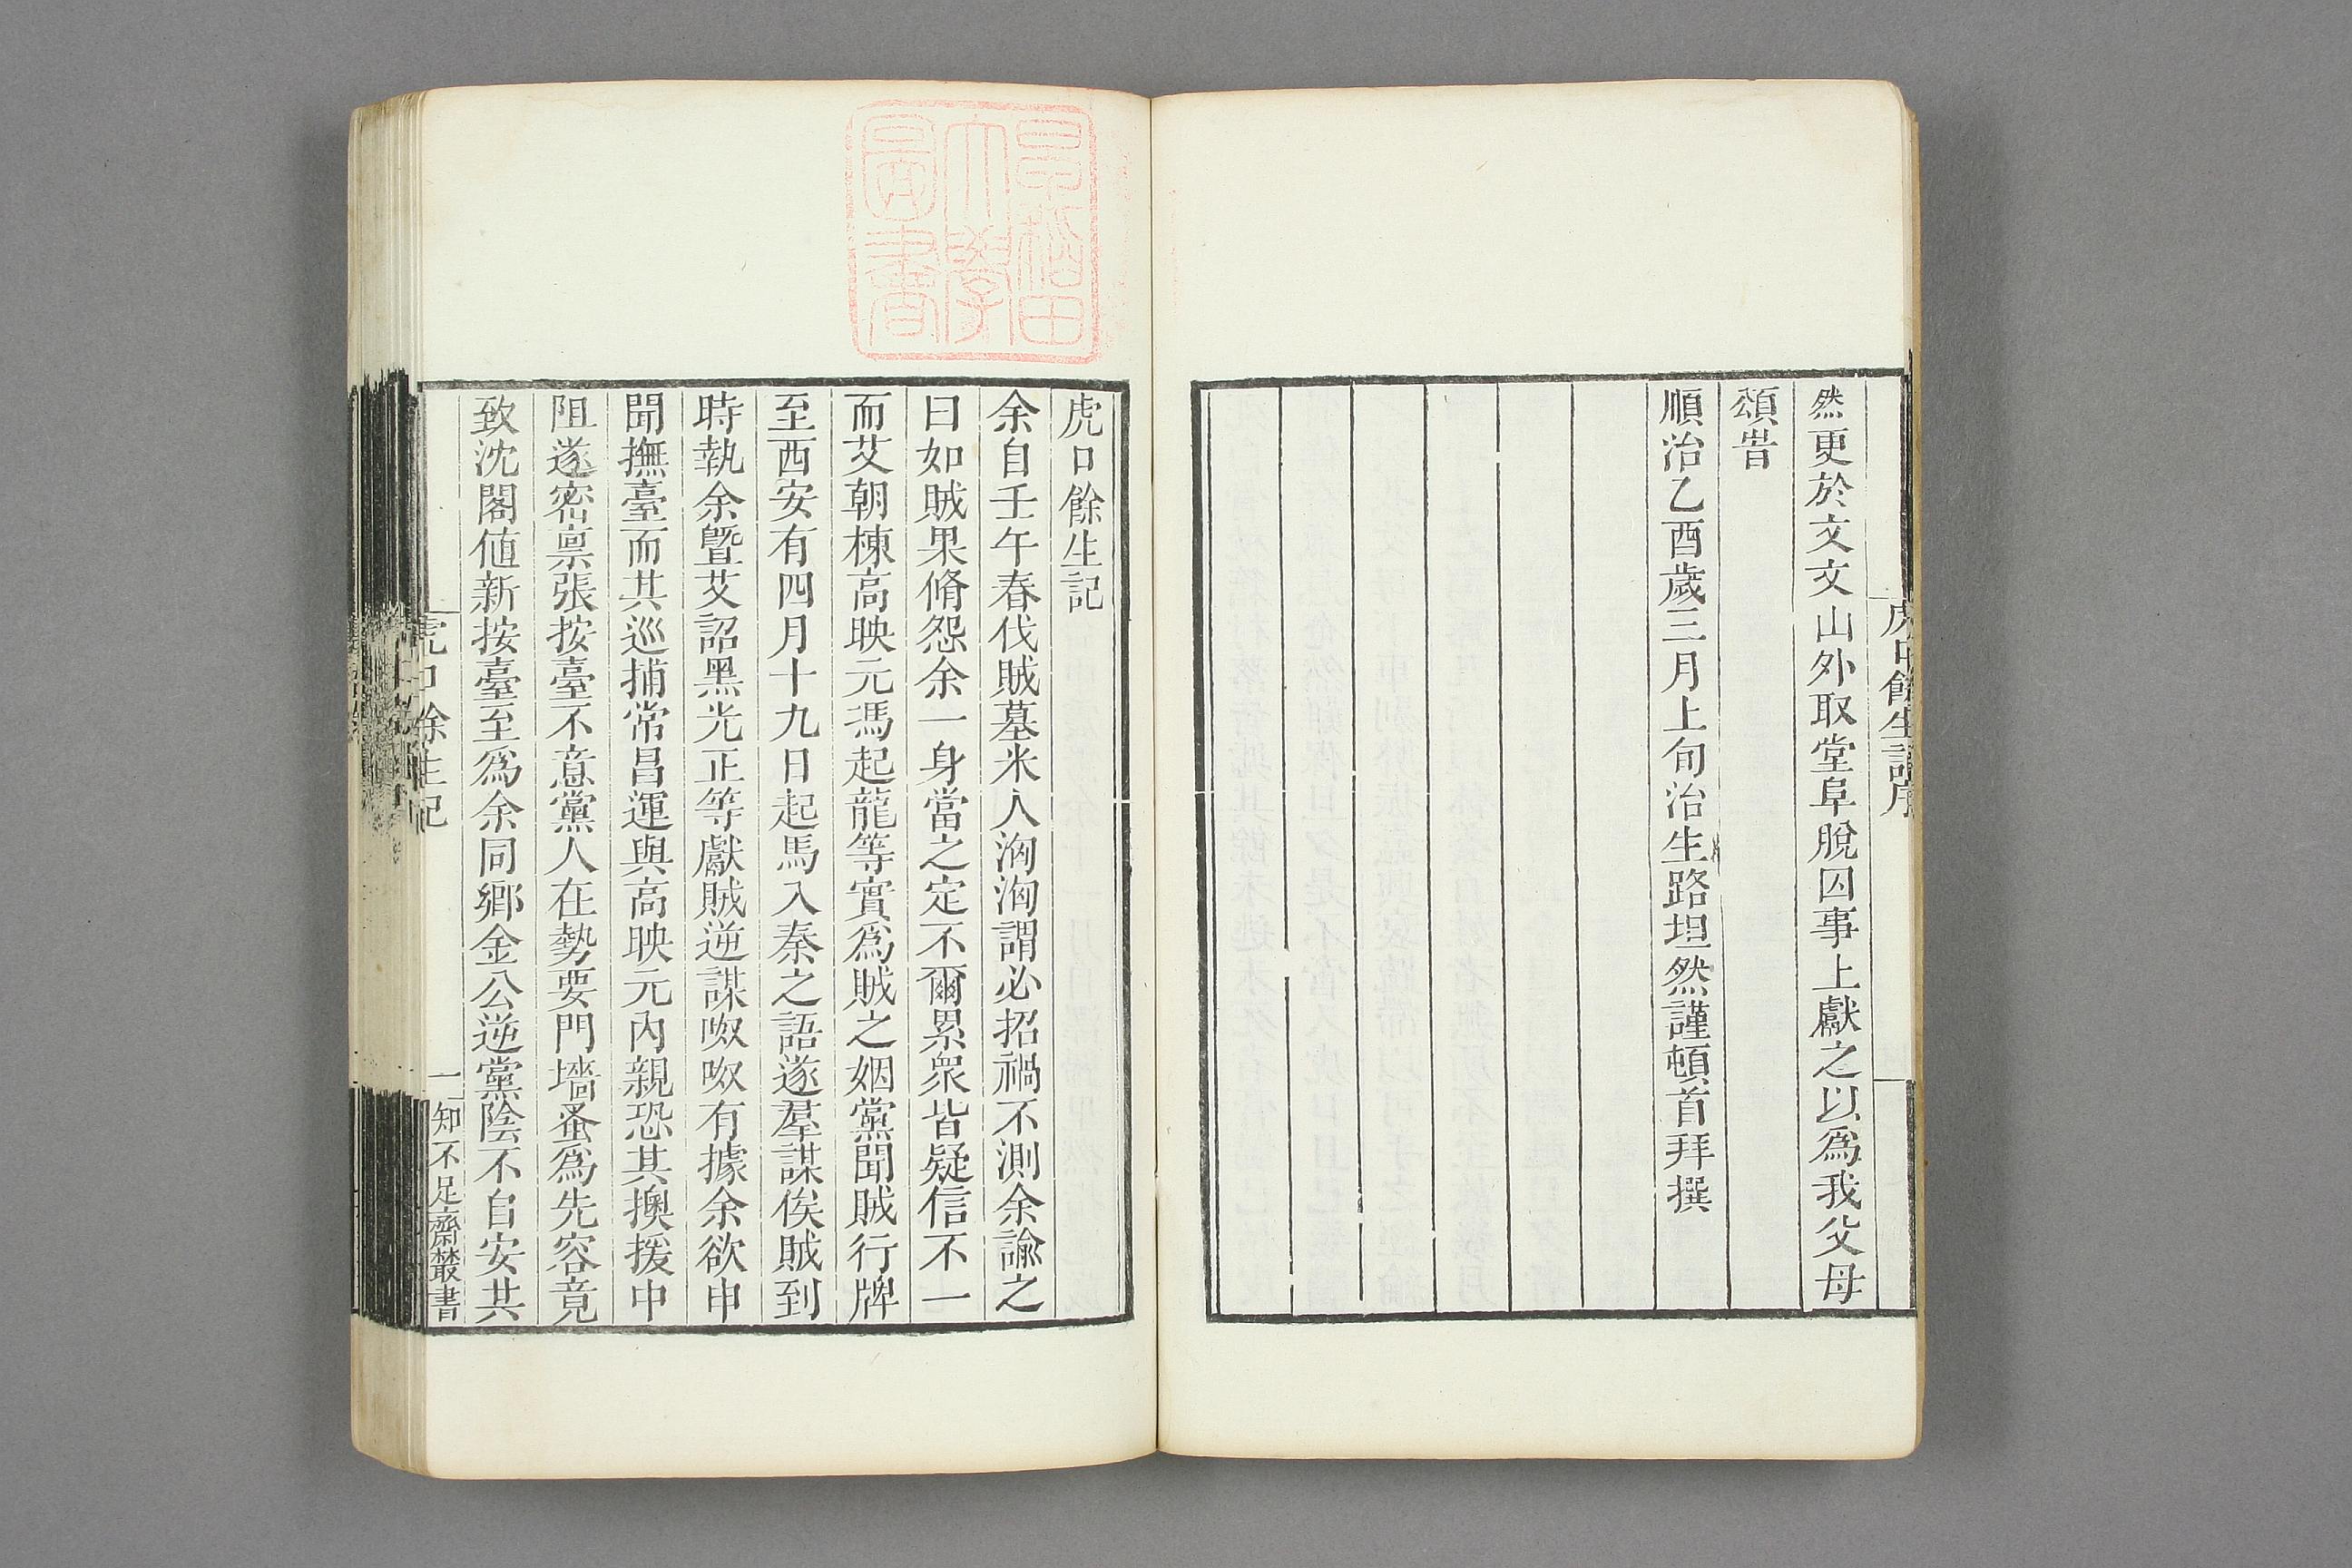 虎口餘生記序
然更於文文山外取堂阜脫囚事上獻之以爲我父母
頌昔
順治乙酉歲三月上旬治生路坦然謹頓首拜撰
早稻田
大學
圖書
虎口餘生記
余自壬午春伐賊墓米入洶洶謂必招禍不測余諭之
曰如賊果脩怨余一身當之定不爾累衆皆疑信不一
而艾朝棟高映元馮起龍等實爲賊之姻黨聞賊行牌
至西安有四月十九日起馬入秦之語遂羣謀俟賊到
時執余曁艾詔黑光正等獻賊逆謀呶呶有據余欲申
聞撫臺而其巡捕常昌運與高映元內親恐其擙援中
阻遂密禀張按臺不意黨人在勢要門墻蚤爲先容竟
致沈閣値新按臺至爲余同鄉金公逆黨陰不自安共
虎口餘生記
一
知不足齋叢書